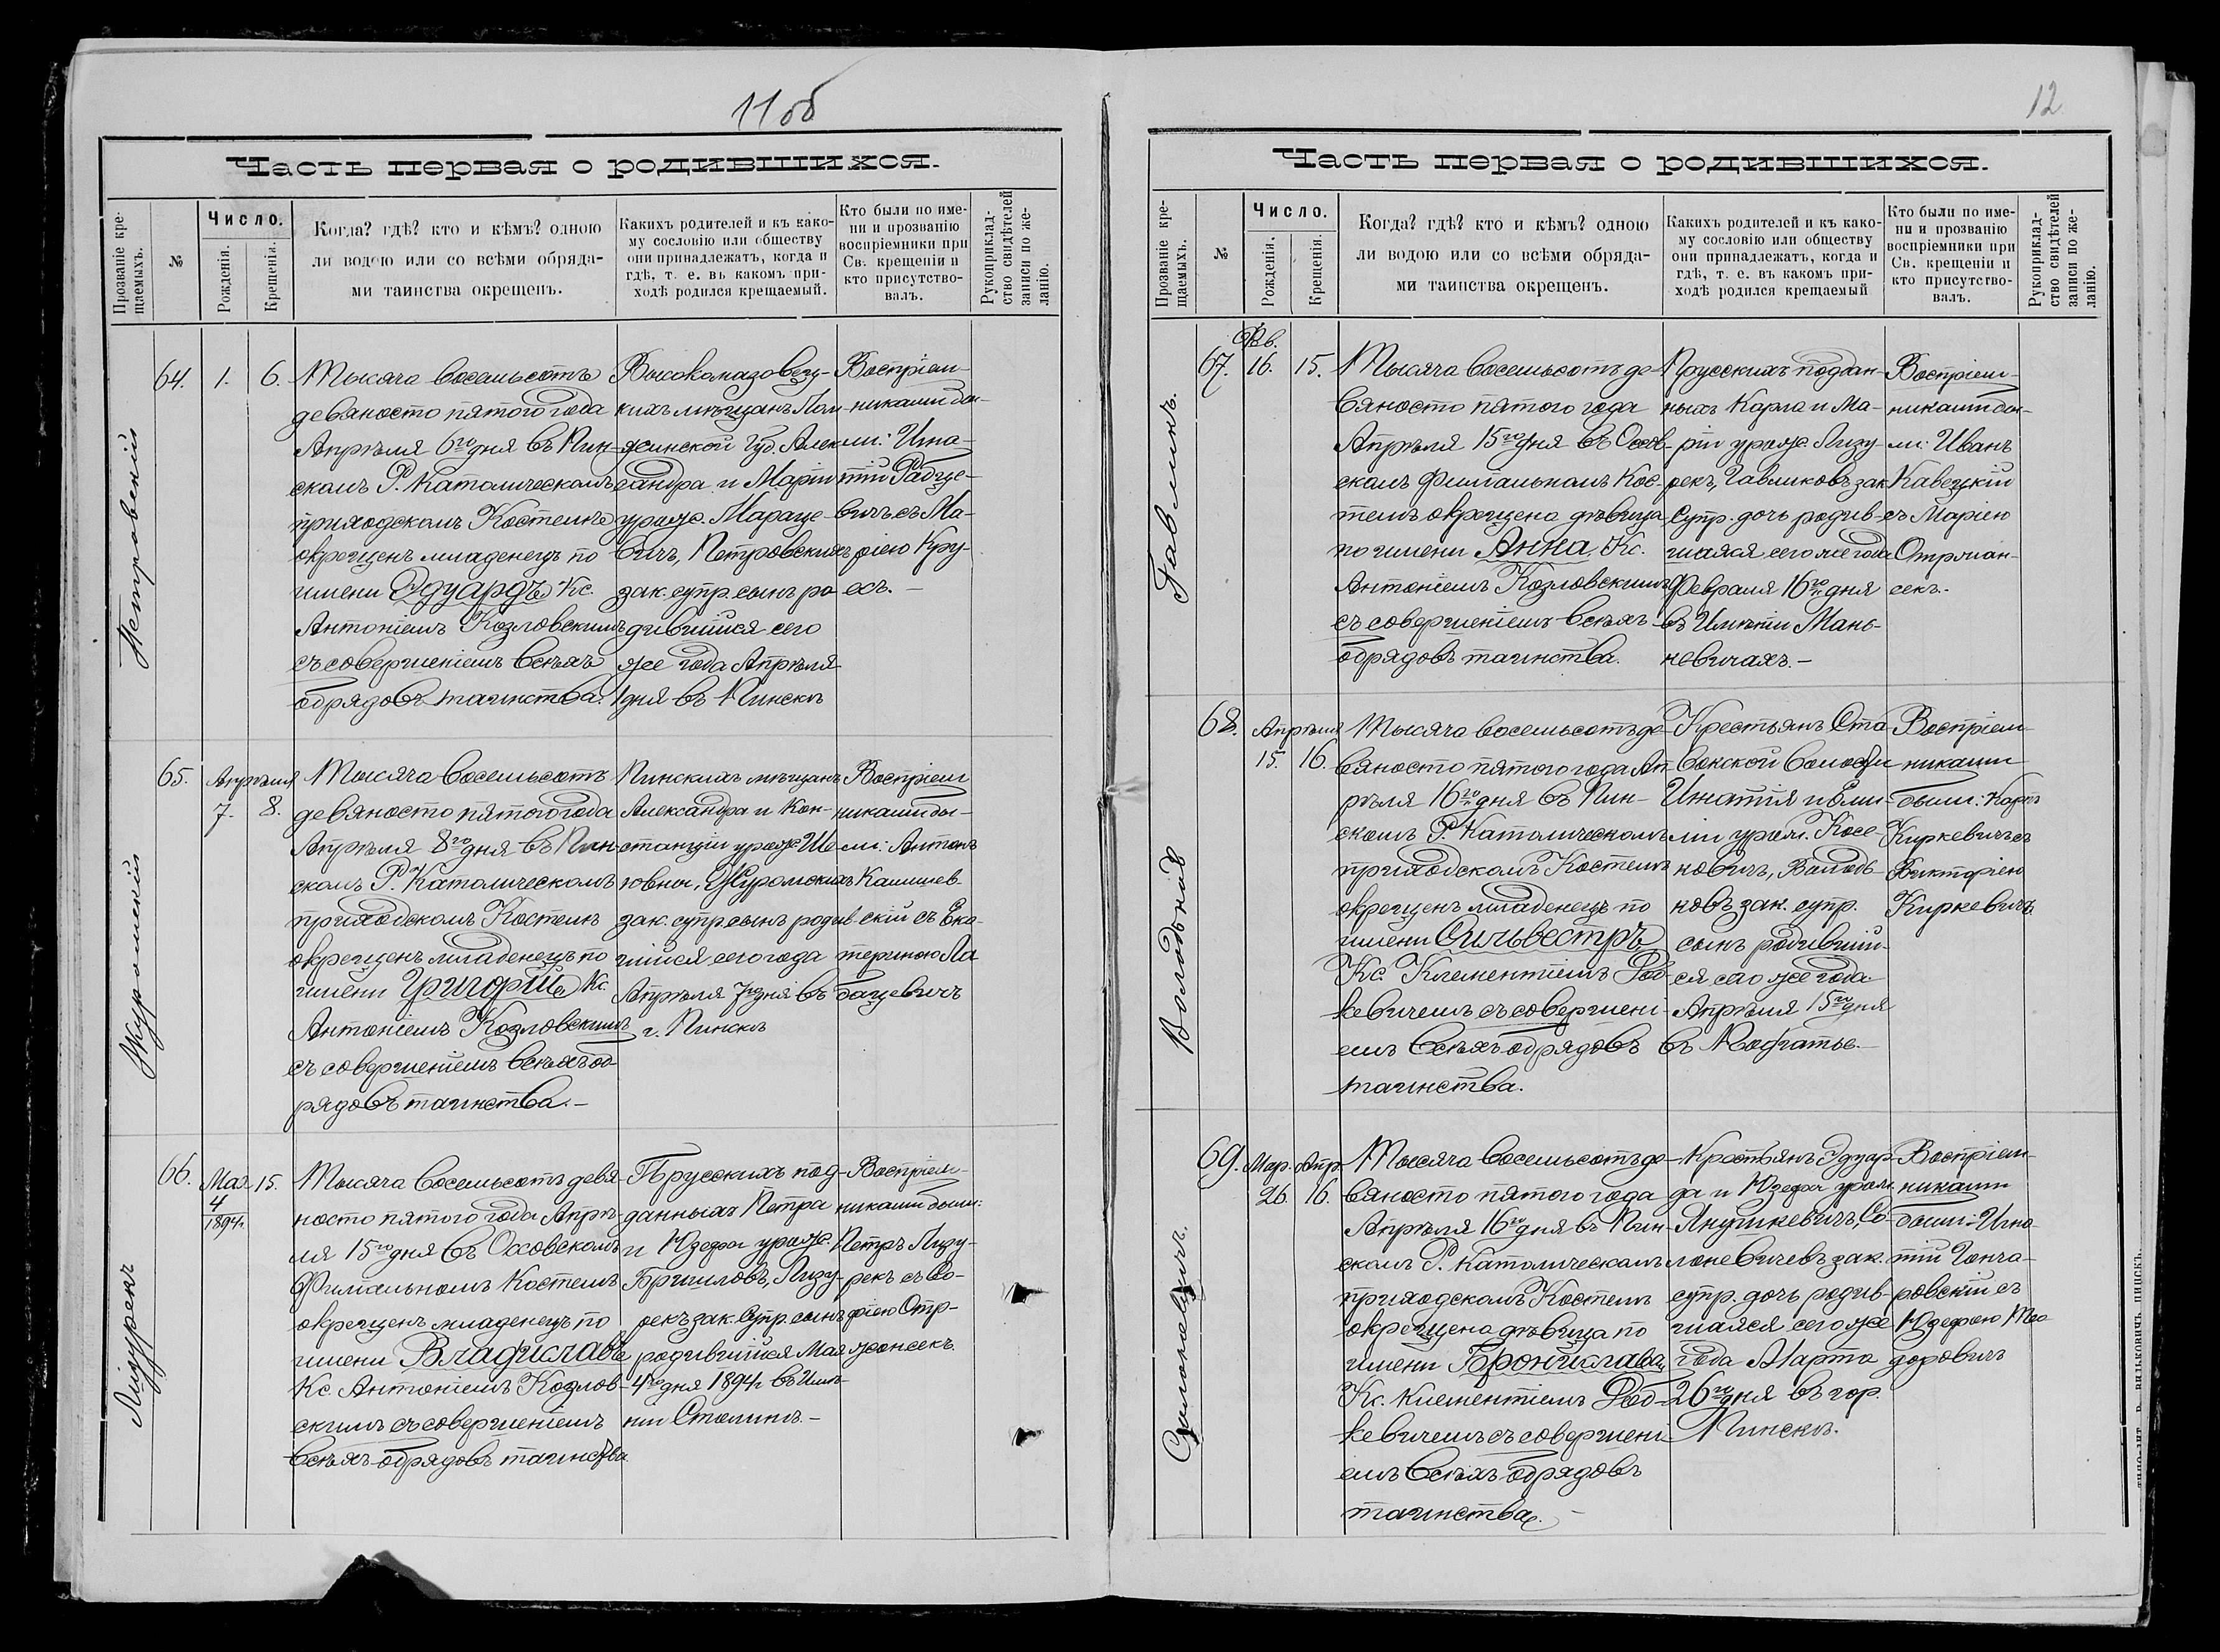 11 об
Часть первая о родившихся.
Прозваніе кре-
щаемыхъ.
№
Число.
Рожденія.
Крещенія.
Когда? гдѣ? кто и кѣмъ? одною
ли водою или со всѣми обряда-
ми таинства окрещенъ.
Какихъ родителей и къ како-
му сословію или обществу
они принадлежатъ, когда и
гдѣ, т. е. въ какомъ при-
ходѣ родился крещаемый.
Кто были по име-
ни и прозванію
воспріемники при
Св. крещеніи и
кто присутство-
валъ.
Рукоприклад-
ство свидѣтелей
записи по же-
ланію.
Петровскій
64.
1.
6.
Тысяча восемьсотъ
девяносто пятого года
Апрѣля 6го дня въ Пин-
скомъ Р. Католическомъ
приходскомъ Костелѣ
окрещенъ младенецъ по
имени Эдуардъ Кс.
Антоніемъ Козловскимъ
съ совершеніемъ всѣхъ
обрядовъ таинства.
Высокомазовец-
кихъ мѣщанъ Лом-
жинской Губ. Алек-
сандра и Маріи
урожд. Мараце-
вичъ, Петровскихъ
зак. супр. сынъ ро-
дившійся сего
же года Апрѣля
1 дня въ Пинскѣ
Воспріем-
никами бы-
ли: Игна-
тій Радце-
вичъ съ Ма-
ріею Кру-
есъ. —
Журомскій
65.
Апрѣля
7.
8.
Тысяча восемьсотъ
девяносто пятого года
Апрѣля 8го дня въ Пин-
скомъ Р. Католическомъ
приходскомъ Костелѣ
окрещенъ младенецъ по
имени Григорій Кс.
Антоніемъ Козловскимъ
съ совершеніемъ всѣхъ об-
рядовъ таинства. —
Пинскихъ мѣщанъ
Александра и Кон-
станціи урожд. Ше-
ювны, Журомскихъ
зак. супр. сынъ родив-
шійся сего года
Апрѣля 7го дня въ
г. Пинскѣ
Воспріем
никами бы-
ли: Антонъ
Калишев-
скій съ Ека-
териною Ла
бацевичъ
Лизурекъ
66.
Мая
4
1894г.
15.
Тысяча восемьсотъ девя-
носто пятого года Апрѣ-
ля 15го дня въ Оховскомъ
Филіальномъ Костелѣ
окрещенъ младенецъ по
имени Владиславъ
Кс. Антоніемъ Козлов-
скимъ съ совершеніемъ
всѣхъ обрядовъ таинства
Прусскихъ под-
данныхъ Петра
и Юзефы урожд.
Бриловъ, Лизу-
рекъ зак. супр. сынъ
родившійся Мая
4го дня 1894г въ Имѣ-
ніи Столинѣ. —
Воспріем-
никами были:
Петръ Лизу-
рекъ съ Со-
фіею Отр-
жонсекъ.
12
Часть первая о родившихся.
Прозваніе кре-
щаемыхъ.
№
Число.
Рожденія.
Крещенія.
Когда? гдѣ? кто и кѣмъ? одною
ли водою или со всѣми обряда-
ми таинства окрещенъ.
Какихъ родителей и къ како-
му сословію или обществу
они принадлежатъ, когда и
гдѣ, т. е. въ какомъ при-
ходѣ родился крещаемый
Кто были по име-
ни и прозванію
воспріемники при
Св. крещеніи и
кто присутство-
валъ.
Рукоприклад-
ство свидѣтелей
записи по же-
ланію.
Гавликъ.
67.
Фев.
16.
15.
Тысяча восемьсотъ де-
вяносто пятого года
Апрѣля 15го дня въ Охов-
скомъ Филіальномъ Кос-
телѣ окрещена дѣвица
по имени Анна, Кс.
Антоніемъ Козловскимъ
съ совершеніемъ всѣхъ
обрядовъ таинства.
Прусскихъ поддан-
ныхъ Карла и Ма-
ріи урожд. Лизу-
рекъ, Гавликовъ зак
Супр. дочь родив-
шаяся сего же года
Февраля 16го дня
въ Имѣніи Мань-
кевичахъ. —
Воспріем-
никами бы-
ли: Иванъ
Кавецкій
съ Маріею
Отржан-
секъ. —
Володько
68.
Апрѣля
15.
16.
Тысяча восемьсотъ де-
вяносто пятого года Ап-
рѣля 16го дня въ Пин-
скомъ Р. Католическомъ
приходскомъ Костелѣ
окрещенъ младенецъ по
имени Сильвестръ
Кс. Клементіемъ Род-
кевичемъ съ совершені-
емъ всѣхъ обрядовъ
таинства.
Крестьянъ Ста
вокской волости
Игнатія и Эми-
ліи урож. Косе-
новичъ, Володь-
ковъ зак. супр.
сынъ родившій-
ся сего же года
Апрѣля 15го дня
въ
Воспріем-
никами
были: Карлъ
Киркевичъ съ
Викторіею
Киркевичъ
Соколовичъ.
69.
Мар.
26
Апр.
16.
Тысяча восемьсотъ де-
вяносто пятого года
Апрѣля 16го дня въ Пин-
скомъ Р. Католическомъ
приходскомъ Костелѣ
окрещена дѣвица по
имени Бронислава,
Кс. Клементіемъ Род-
кевичемъ съ совершені-
емъ всѣхъ обрядовъ
таинства. —
Крестьянъ Эдуар-
да и Юзефы урож.
Янушкевичъ, Со-
лоневичевъ зак.
супр. дочь родив-
шаяся сего же
года Марта
26го дня въ гор.
Пинскѣ.
Воспріем-
никами
были: Игна-
тій Гонча-
ровскій съ
Юзефою Тео
доровичъ